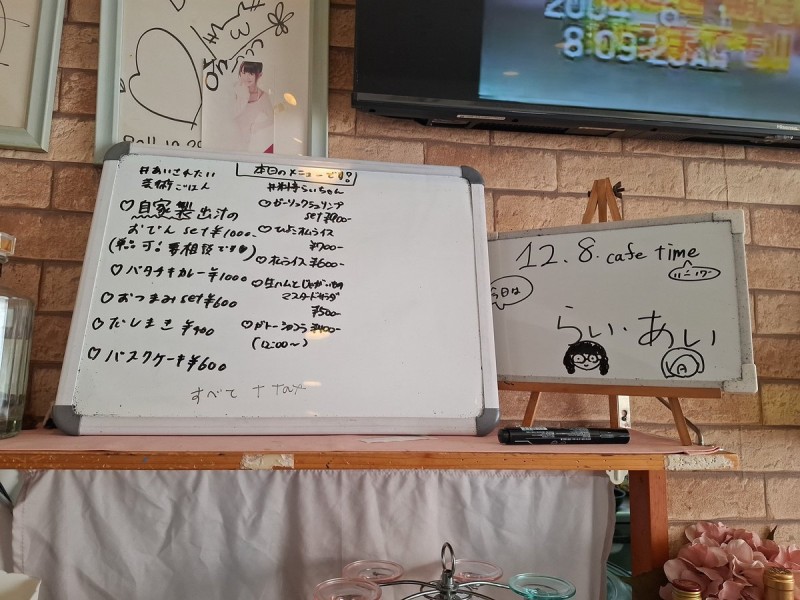 2004 6 1
8:09:2
本日のメニューです!
#あいされたい
芸術ごはん
♡自家製出汁の
おでん set ¥1000-
(単品可!要相談です♡)
♡バタチキカレー ¥1000
♡おつまみset ¥600
♡だしまき ¥400
♡バスクケーキ ¥600
#料亭らいちゃん
♡ガーリックシュリンプ
set ¥900-
♡ひよこオムライス
¥700-
♡オムライス ¥600-
♡生ハムとじゃがいもの
マスタードサラダ
¥500-
♡ガトーショコラ ¥400-
(12:00〜)
すべて + tax
12.8. cafe time
今日は
らい・あい